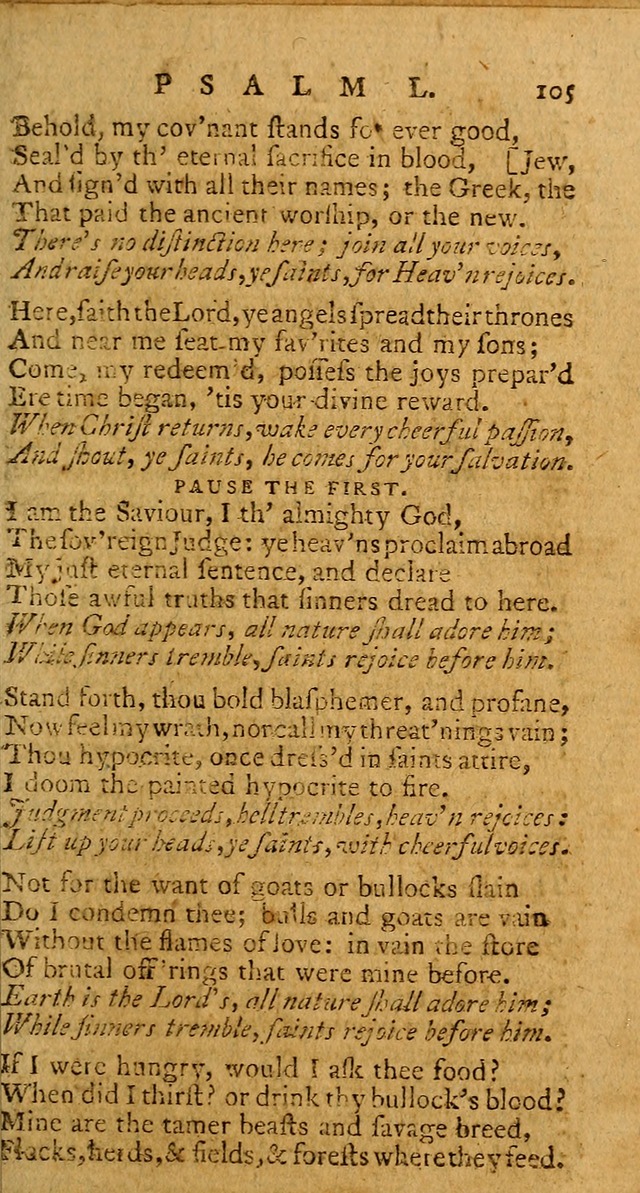 PSALM L. 105
Behold, my cov'nant ſtands for ever good,
Seal'd by th' eternal ſacrifice in blood, [Jew,
And ſign'd with all their names; the Greek, the
That paid the ancient worſhip, or the new.
There's no diſtinction here; join all your voices,
And raiſe your heads, ye ſaints, for Heav'n rejoices.
Here, ſaith the Lord, ye angels ſpread their thrones
And near me ſeat my fav'rites and my ſons;
Come, my redeem'd, poſſeſs the joys prepar'd
Ere time began, 'tis your divine reward.
When Chriſt returns, wake every cheerful paſſion,
And ſhout, ye ſaints, he comes for your ſalvation.
PAUSE THE FIRST.
I am the Saviour, I th' almighty God,
The ſov'reign Judge: ye heav'ns proclaim abroad
My juſt eternal ſentence, and declare
Thoſe awful truths that ſinners dread to here.
When God appears, all nature ſhall adore him;
While ſinners tremble, ſaints rejoice before him.
Stand forth, thou bold blaſphemer, and profane,
Now feel my wrath, nor call my threat'nings vain;
Thou hypocrite, once dreſs'd in ſaints attire,
I doom the painted hypocrite to fire.
Judgment proceeds, hell trembles, heav'n rejoices:
Lift up your heads, ye ſaints, with cheerful voices.
Not for the want of goats or bullocks ſlain
Do I condemn thee; bulls and goats are vain
Without the flames of love: in vain the ſtore
Of brutal off'rings that were mine before.
Earth is the Lord's, all nature ſhall adore him;
While ſinners tremble, ſaints rejoice before him.
If I were hungry, would I aſk thee food?
When did I thirſt? or drink thy bullock's blood?
Mine are the tamer beaſts and ſavage breed,
Flocks, herds, & fields, & foreſts where they feed.